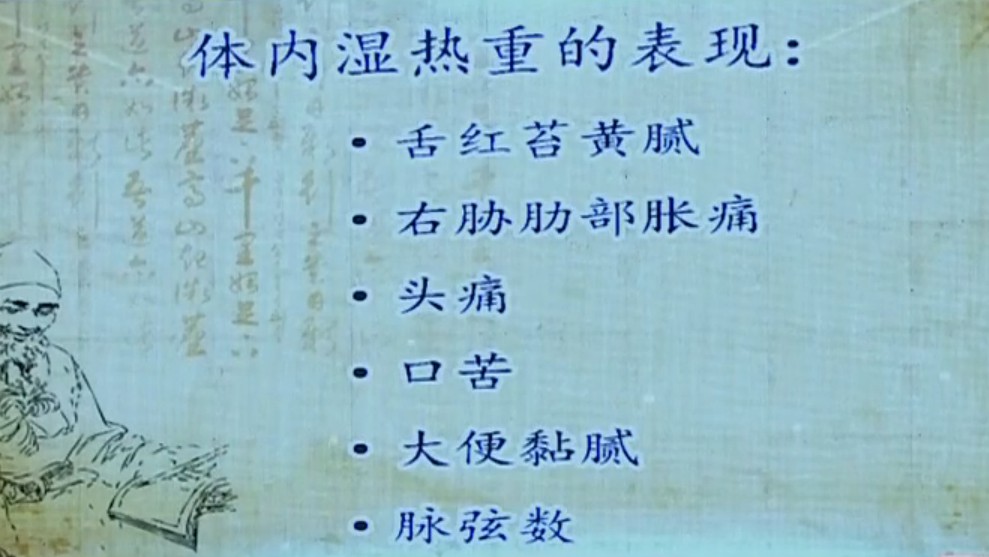 体内湿热重的表现：
• 舌红苔黄腻
• 右胁肋部胀痛
• 头痛
• 口苦
• 大便黏腻
• 脉弦数